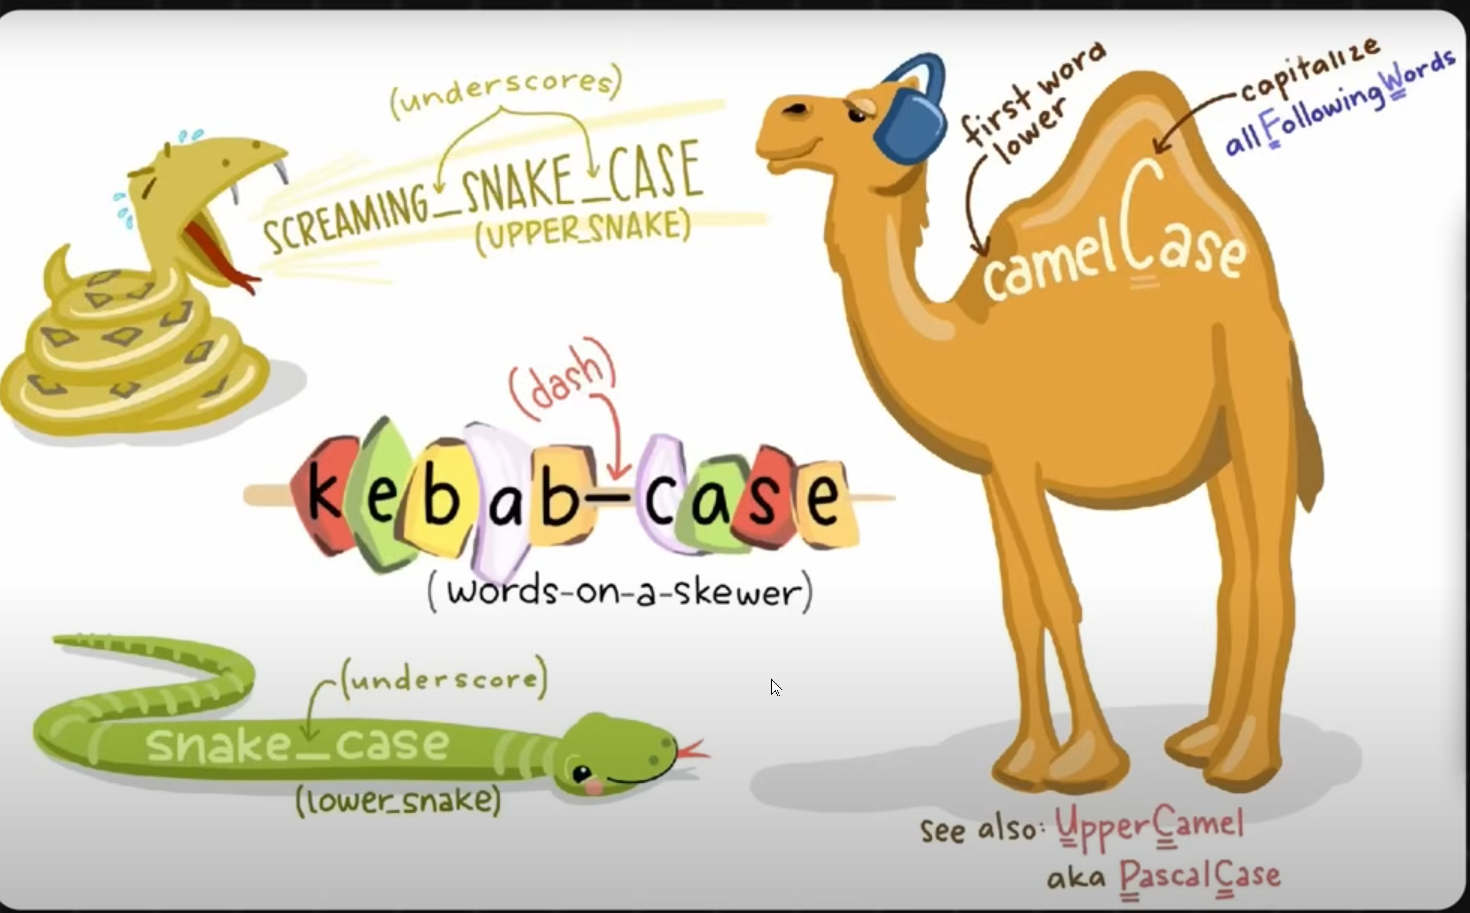 (underscores)
SCREAMING_SNAKE_CASE
(UPPER_SNAKE)
first word
lower
capitalize
allFollowingWords
camelCase
(dash)
kebab-case
(words-on-a-skewer)
(underscore)
snake_case
(lower_snake)
see also: UpperCamel
aka PascalCase